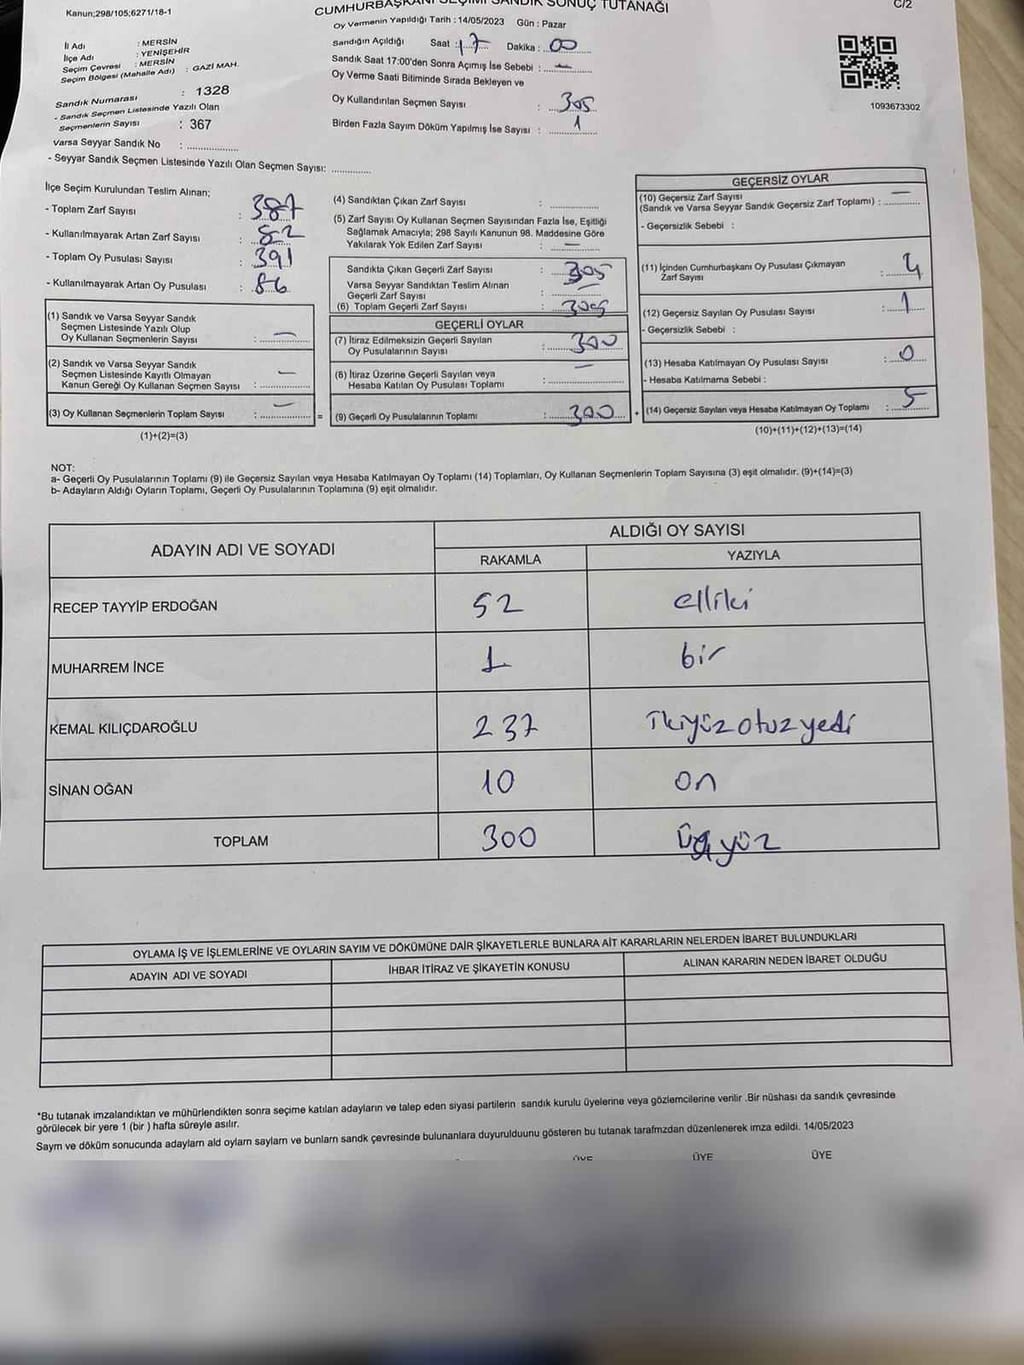 Kanun;298/105;6271/18-1
CUMHURBAŞKANI SEÇİMİ SANDIK SONUÇ TUTANAĞI
C/2
Oy Vermenin Yapıldığı Tarih : 14/05/2023 Gün : Pazar
İl Adı : MERSİN
İlçe Adı : YENİŞEHİR
Seçim Çevresi : MERSİN
Seçim Bölgesi (Mahalle Adı) : GAZİ MAH.
Sandık Numarası : 1328
- Sandık Seçmen Listesinde Yazılı Olan
Seçmenlerin Sayısı : 367
Varsa Seyyar Sandık No : ..................
- Seyyar Sandık Seçmen Listesinde Yazılı Olan Seçmen Sayısı: .............
Sandığın Açıldığı Saat : 17 Dakika : 00
Sandık Saat 17:00'den Sonra Açımış İse Sebebi : —
Oy Verme Saati Bitiminde Sırada Bekleyen ve
Oy Kullandırılan Seçmen Sayısı : 305
Birden Fazla Sayım Döküm Yapılmış İse Sayısı : 1
1093673302
İlçe Seçim Kurulundan Teslim Alınan;
- Toplam Zarf Sayısı : 387
- Kullanılmayarak Artan Zarf Sayısı : 82
- Toplam Oy Pusulası Sayısı : 391
- Kullanılmayarak Artan Oy Pusulası : 86
(1) Sandık ve Varsa Seyyar Sandık
Seçmen Listesinde Yazılı Olup
Oy Kullanan Seçmenlerin Sayısı : —
(2) Sandık ve Varsa Seyyar Sandık
Seçmen Listesinde Kayıtlı Olmayan
Kanun Gereği Oy Kullanan Seçmen Sayısı : —
(3) Oy Kullanan Seçmenlerin Toplam Sayısı : —
(1)+(2)=(3)
(4) Sandıktan Çıkan Zarf Sayısı : ..............
(5) Zarf Sayısı Oy Kullanan Seçmen Sayısından Fazla İse, Eşitliği
Sağlamak Amacıyla; 298 Sayılı Kanunun 98. Maddesine Göre
Yakılarak Yok Edilen Zarf Sayısı : —
Sandıkta Çıkan Geçerli Zarf Sayısı : 305
Varsa Seyyar Sandıktan Teslim Alınan
Geçerli Zarf Sayısı : —
(6) Toplam Geçerli Zarf Sayısı : 305
GEÇERLİ OYLAR
(7) İtiraz Edilmeksizin Geçerli Sayılan
Oy Pusulalarının Sayısı : 300
(8) İtiraz Üzerine Geçerli Sayılan veya
Hesaba Katılan Oy Pusulası Toplamı : —
= (9) Geçerli Oy Pusulalarının Toplamı : 300
GEÇERSİZ OYLAR
(10) Geçersiz Zarf Sayısı
(Sandık ve Varsa Seyyar Sandık Geçersiz Zarf Toplamı) : —
- Geçersizlik Sebebi :
(11) İçinden Cumhurbaşkanı Oy Pusulası Çıkmayan
Zarf Sayısı : 4
(12) Geçersiz Sayılan Oy Pusulası Sayısı : 1
- Geçersizlik Sebebi :
(13) Hesaba Katılmayan Oy Pusulası Sayısı : 0
- Hesaba Katılmama Sebebi :
+ (14) Geçersiz Sayılan veya Hesaba Katılmayan Oy Toplamı : 5
(10)+(11)+(12)+(13)=(14)
NOT:
a- Geçerli Oy Pusulalarının Toplamı (9) ile Geçersiz Sayılan veya Hesaba Katılmayan Oy Toplamı (14) Toplamları, Oy Kullanan Seçmenlerin Toplam Sayısına (3) eşit olmalıdır. (9)+(14)=(3)
b- Adayların Aldığı Oyların Toplamı, Geçerli Oy Pusulalarının Toplamına (9) eşit olmalıdır.
ADAYIN ADI VE SOYADI
ALDIĞI OY SAYISI
RAKAMLA YAZIYLA
RECEP TAYYİP ERDOĞAN 52 elliiki
MUHARREM İNCE 1 bir
KEMAL KILIÇDAROĞLU 237 ikiyüzotuzyedi
SİNAN OĞAN 10 on
TOPLAM 300 üçyüz
OYLAMA İŞ VE İŞLEMLERİNE VE OYLARIN SAYIM VE DÖKÜMÜNE DAİR ŞİKAYETLERLE BUNLARA AİT KARARLARIN NELERDEN İBARET BULUNDUKLARI
ADAYIN ADI VE SOYADI İHBAR İTİRAZ VE ŞİKAYETİN KONUSU ALINAN KARARIN NEDEN İBARET OLDUĞU
*Bu tutanak imzalandıktan ve mühürlendikten sonra seçime katılan adayların ve talep eden siyasi partilerin sandık kurulu üyelerine veya gözlemcilerine verilir .Bir nüshası da sandık çevresinde
görülecek bir yere 1 (bir ) hafta süreyle asılır.
Saym ve döküm sonucunda adaylarn ald oylarn saylarn ve bunlarn sandk çevresinde bulunanlara duyurulduunu gösteren bu tutanak tarafmzdan düzenlenerek imza edildi. 14/05/2023
ÜYE ÜYE ÜYE